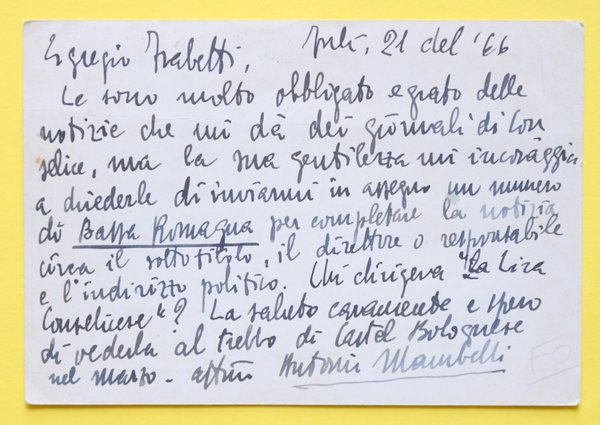 Egregio Trabetti, Forlì, 21 del '66
Le sono molto obbligato e grato delle
notizie che mi dà dei giornali di Con
selice, ma la sua gentilezza mi incoraggia
a chiederle di inviarmi in assegno un numero
di Bassa Romagna per completare la notizia
circa il sottotitolo, il direttore o responsabile
e l'indirizzo politico. Chi dirigeva "La Lira
Conselicese"? La saluto caramente e spero
di vederla al trebbo di Castel Bolognese
nel marzo - aff.mo Antonio Mambelli
FO